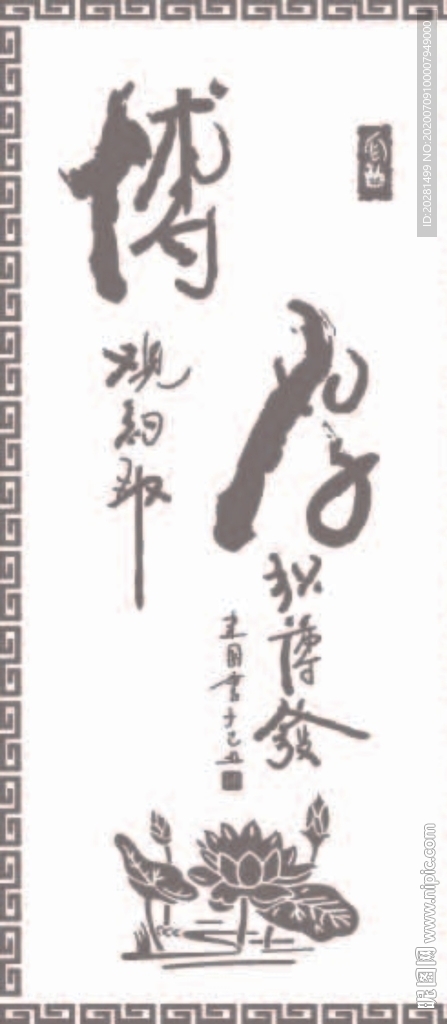 博观约取
厚积薄發
建国書于己丑
ID:20281499 NO:20200709100007949000
昵图网 www.nipic.com